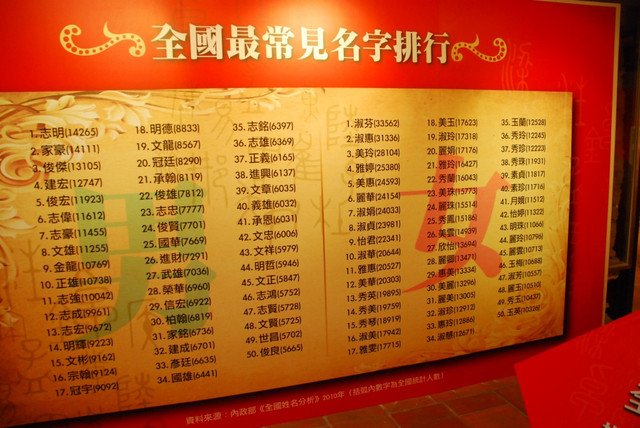 全國最常見名字排行
男
1.志明(14265)
2.家豪(14111)
3.俊傑(13105)
4.建宏(12747)
5.俊宏(11923)
6.志偉(11612)
7.志豪(11455)
8.文雄(11255)
9.金龍(10769)
10.正雄(10738)
11.志強(10042)
12.志成(9961)
13.志宏(9672)
14.明輝(9223)
15.文彬(9162)
16.宗翰(9124)
17.冠宇(9092)
18.明德(8833)
19.文龍(8567)
20.冠廷(8290)
21.承翰(8119)
22.俊雄(7812)
23.志忠(7777)
24.俊賢(7701)
25.國華(7669)
26.進財(7291)
27.武雄(7036)
28.榮華(6960)
29.信宏(6922)
30.柏翰(6819)
31.家銘(6736)
32.建成(6701)
33.彥廷(6635)
34.國雄(6441)
35.志銘(6397)
36.志雄(6369)
37.正義(6165)
38.進興(6137)
39.文章(6035)
40.義雄(6032)
41.承恩(6031)
42.文忠(6006)
43.文祥(5979)
44.明哲(5946)
45.文正(5847)
46.志鴻(5752)
47.志賢(5728)
48.文賢(5725)
49.世昌(5702)
50.俊良(5665)
女
1.淑芬(33562)
2.淑惠(31336)
3.美玲(28104)
4.雅婷(25380)
5.美惠(24593)
6.麗華(24154)
7.淑娟(24033)
8.淑貞(23981)
9.怡君(22341)
10.淑華(20644)
11.雅惠(20527)
12.美華(20303)
13.秀英(19895)
14.秀美(19759)
15.秀琴(18919)
16.淑美(17942)
17.雅雯(17715)
18.美玉(17623)
19.淑玲(17318)
20.麗娟(17176)
21.雅玲(16427)
22.秀蘭(16043)
23.美珠(15773)
24.麗珠(15514)
25.秀鳳(15186)
26.美雲(14939)
27.欣怡(13694)
28.麗卿(13471)
29.惠美(13334)
30.美麗(13296)
31.麗美(13005)
32.淑珍(12912)
33.惠玲(12886)
34.淑慧(12671)
35.玉蘭(12528)
36.秀玲(12245)
37.秀珍(12223)
38.秀珠(11931)
39.素貞(11817)
40.素珍(11716)
41.月娥(11512)
42.怡婷(11322)
43.明珠(11066)
44.麗玲(10796)
45.麗雲(10713)
46.玉梅(10688)
47.淑芳(10557)
48.麗玉(10510)
49.秀玉(10437)
50.玉英(10326)
資料來源：內政部《全國姓名分析》2010年（括弧內數字為全國統計人數）